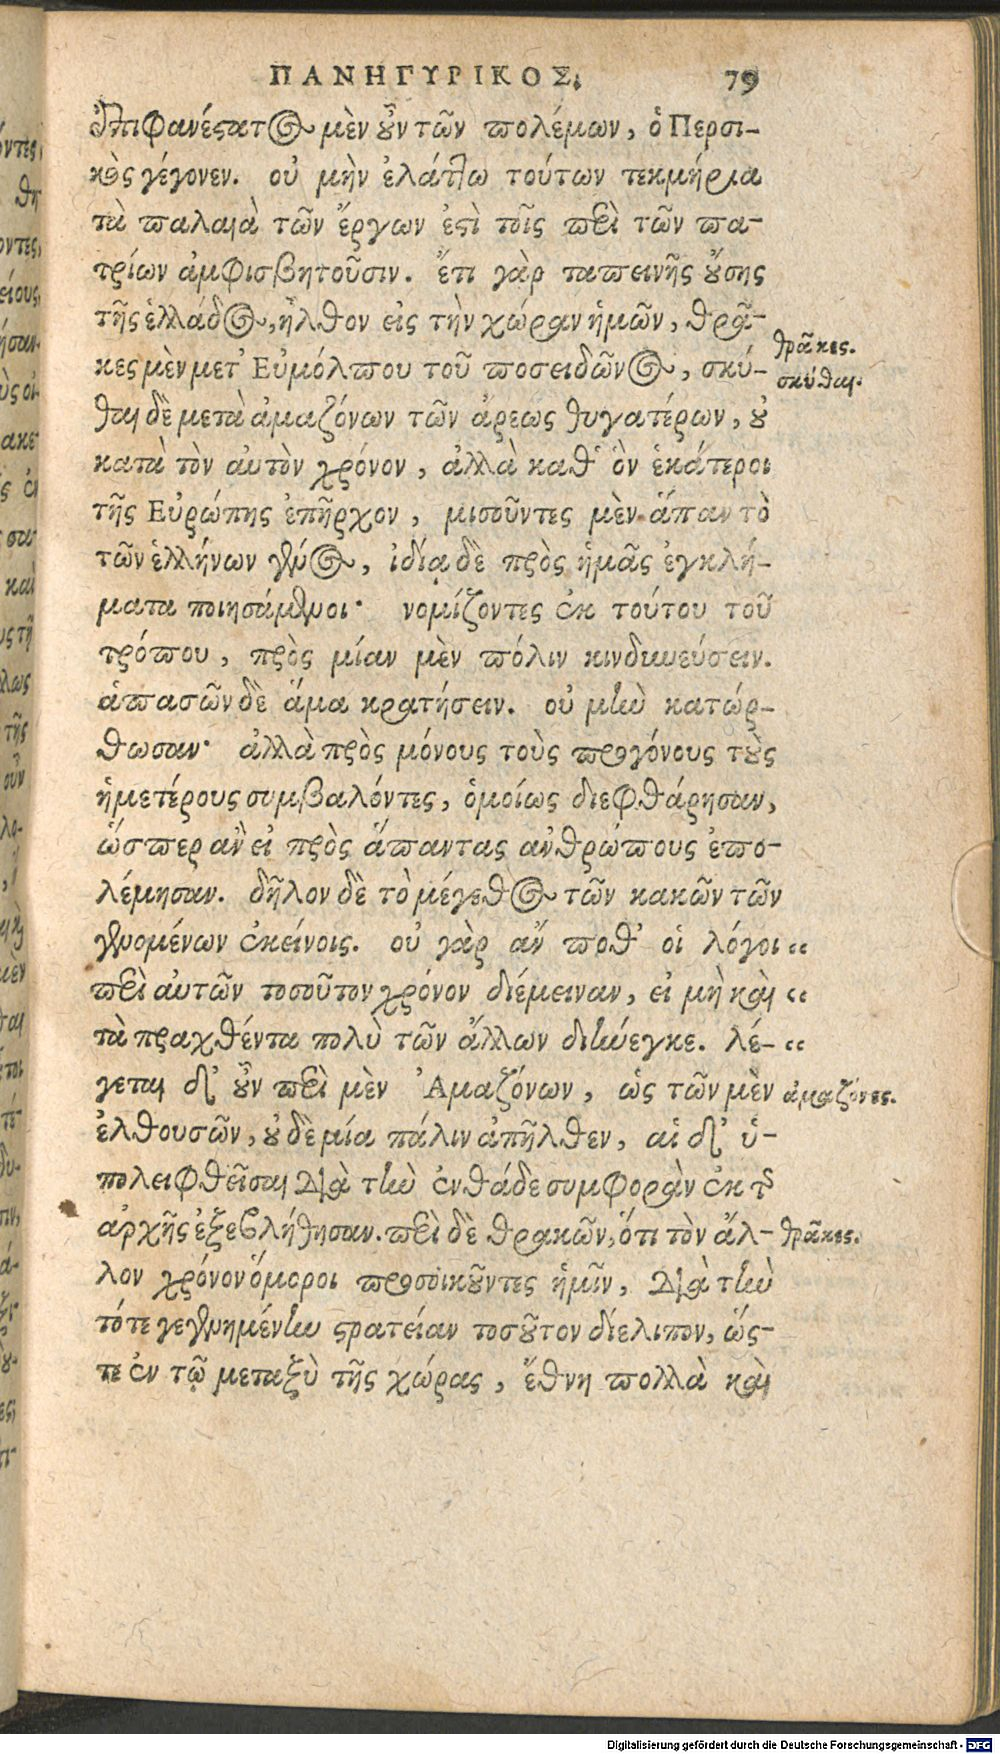 ΠΑΝΗΓΥΡΙΚΟΣ. 79
ἐπιφανέστατος μὲν οὖν τῶν πολέμων, ὁ Περσι-
κὸς γέγονεν. οὐ μὴν ἐλάττω τούτων τεκμήρια
τὰ παλαιὰ τῶν ἔργων ἐστὶ τοῖς περὶ τῶν πα-
τρίων ἀμφισβητοῦσιν. ἔτι γὰρ ταπεινῆς οὔσης
τῆς ἑλλάδος, ἦλθον εἰς τὴν χώραν ἡμῶν, θρᾶ-
κες μὲν μετ' Εὐμόλπου τοῦ ποσειδῶνος, σκύ-
θρᾶκες.
σκύθαι.
θαι δὲ μετὰ ἀμαζόνων τῶν ἄρεως θυγατέρων, οὐ
κατὰ τὸν αὐτὸν χρόνον, ἀλλὰ καθ' ὃν ἑκάτεροι
τῆς Εὐρώπης ἐπῆρχον, μισοῦντες μὲν ἅπαν τὸ
τῶν ἑλλήνων γένος, ἰδίᾳ δὲ πρὸς ἡμᾶς ἐγκλή-
ματα ποιησάμενοι· νομίζοντες ἐκ τούτου τοῦ
τρόπου, πρὸς μίαν μὲν πόλιν κινδυνεύσειν.
ἁπασῶν δὲ ἅμα κρατήσειν. οὐ μὴν κατώρ-
θωσαν· ἀλλὰ πρὸς μόνους τοὺς προγόνους τοὺς
ἡμετέρους συμβαλόντες, ὁμοίως διεφθάρησαν,
ὥσπερ ἂν εἰ πρὸς ἅπαντας ἀνθρώπους ἐπο-
λέμησαν. δῆλον δὲ τὸ μέγεθος τῶν κακῶν τῶν
γενομένων ἐκείνοις. οὐ γὰρ ἄν ποθ' οἱ λόγοι “
περὶ αὐτῶν τοσοῦτον χρόνον διέμειναν, εἰ μὴ καὶ “
τὰ πραχθέντα πολὺ τῶν ἄλλων διήνεγκε. λέ- “
γεται δ' οὖν περὶ μὲν Ἀμαζόνων, ὡς τῶν μὲν ἀμαζόνες.
ἐλθουσῶν, οὐδὲ μία πάλιν ἀπῆλθεν, αἱ δ' ὑ-
πολειφθεῖσαι διὰ τὴν ἐνθάδε συμφορὰν ἐκ τῆς
ἀρχῆς ἐξεβλήθησαν. περὶ δὲ θρᾳκῶν, ὅτι τὸν ἄλ- θρᾶκες.
λον χρόνον ὅμοροι προσοικοῦντες ἡμῖν, διὰ τὴν
τότε γεγενημένην στρατείαν τοσοῦτον διέλιπον, ὥσ-
τε ἐν τῷ μεταξὺ τῆς χώρας, ἔθνη πολλὰ καὶ
Digitalisierung gefördert durch die Deutsche Forschungsgemeinschaft - DFG